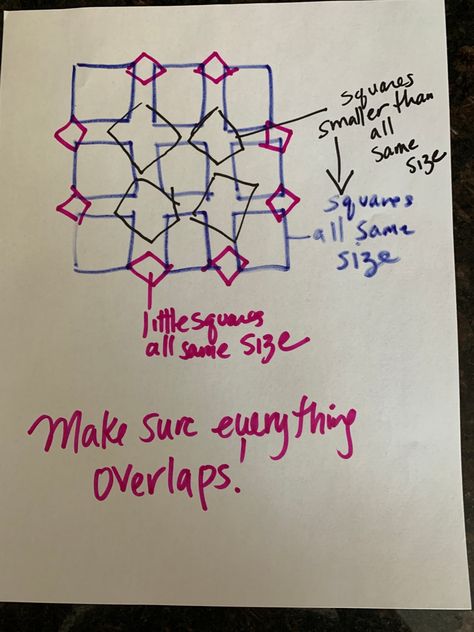 squares
smaller than
all
same
size
squares
all same
size
little squares
all same size
Make sure everything
overlaps!